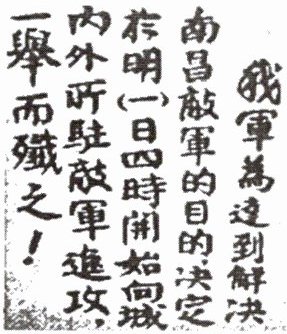 我軍為達到解決
南昌敵軍的目的，決定
於明（一）日四時開始向城
內外所駐敵軍進攻
一舉而殲之！